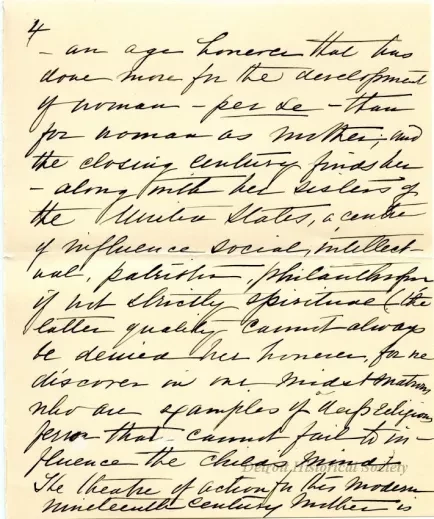 4
- an age however that has
done more for the development
of woman - per se - than
for woman as mother; and
the closing century finds her
- along with her sisters of
the United States, a centre
of influence social, intellect
ual, patriotic, philanthropic
if not strictly spiritual (the
latter quality cannot always
be denied her however, for we
discover in our midst matrons
who are examples of deep religious
fervor that cannot fail to in-
fluence the child's mind).
The theatre of action for this modern
nineteenth century mother is
Detroit Historical Society